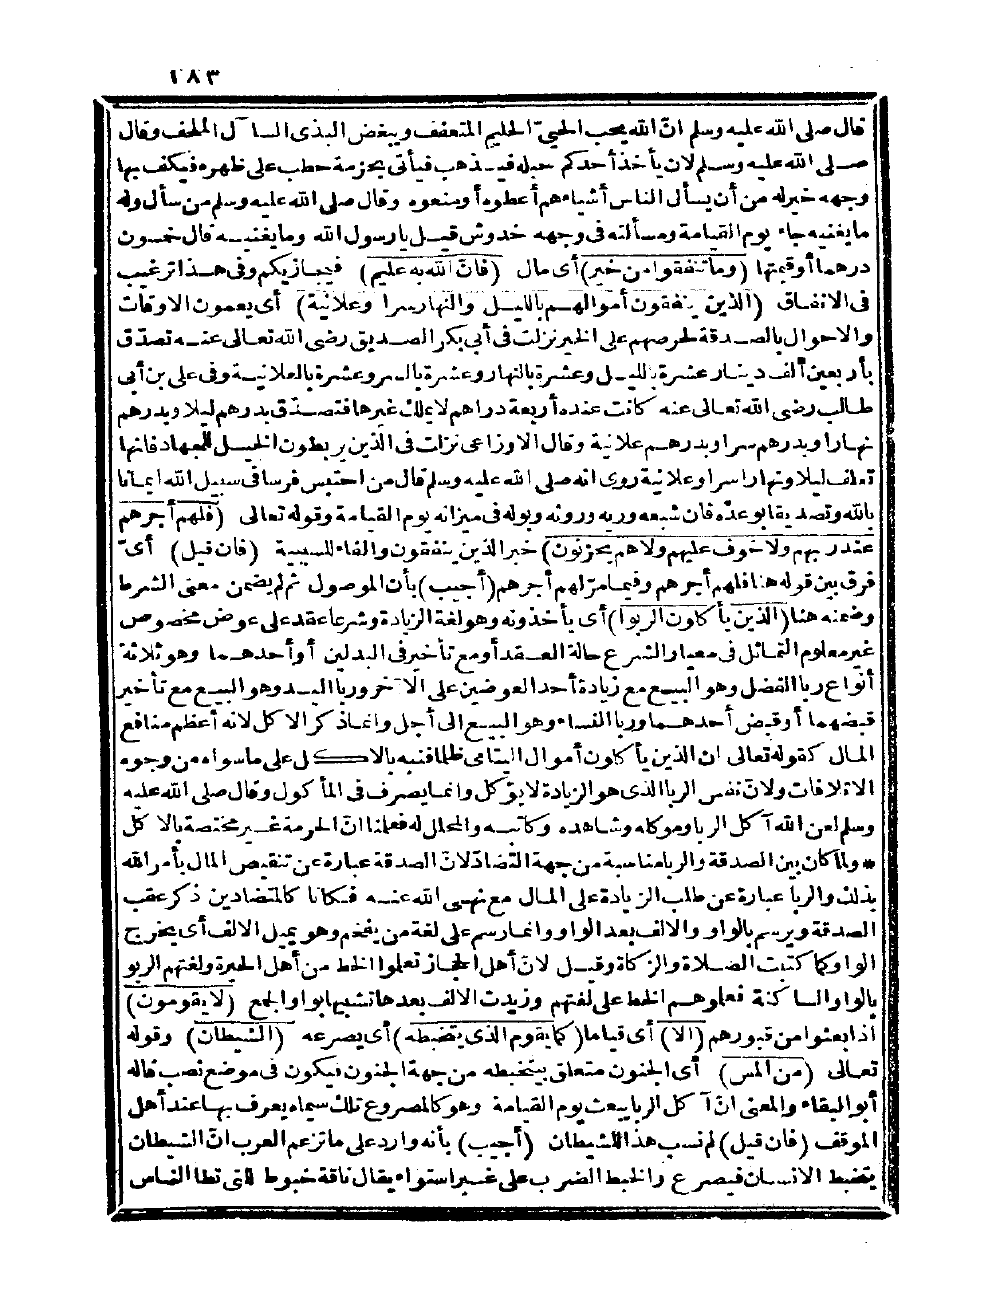 ١٨٣
قال صلى الله عليه وسلم انّ الله يحب الحيىّ الحليم المتعفف ويبغض البذى السا ٓئل الملحف وقال
صلى الله عليه وسلم لان يأخذ أحدكم حبله فيذهب فيأتى بحزمة حطب على ظهره فيكف بها
وجهه خير له من أن يسأل الناس أشياءهم أعطوه أو منعوه وقال صلى الله عليه وسلم من سأل وله
ما يغنيه جاء يوم القيامة ومسألته فى وجهه خدوش قيل يا رسول الله وما يغنيه قال خمسون
درهما أو قيمتها (وما تنفقوا من خير) أى مال (فانّ الله به عليم) فيجازيكم وفى هذا ترغيب
فى الانفاق (الذين ينفقون أموالهم بالليل والنهار سرا وعلانية) أى يعمون الاوقات
والاحوال بالصدقة لحرصهم على الخير نزلت فى أبى بكر الصديق رضى الله تعالى عنه تصدّق
بأربعين ألف دينار عشرة بالليل وعشرة بالنهار وعشرة بالسر وعشرة بالعلانية وفى على بن أبى
طالب رضى الله تعالى عنه كانت عنده أربعة دراهم لا يملك غيرها فتصدّق بدرهم ليلا وبدرهم
نهارا وبدرهم سرا وبدرهم علانية وقال الاوزاعى نزلت فى الذين يربطون الخيل للجهاد فانها
تعلف ليلا ونهارا سرا وعلانية روى انه صلى الله عليه وسلم قال من احتبس فرسا فى سبيل الله ايمانا
بالله وتصديقا بوعده فان شبعه وريه وروثه وبوله فى ميزانه يوم القيامة وقوله تعالى (فلهم أجرهم
عند ربهم ولا خوف عليهم ولا هم يحزنون) خبر الذين ينفقون والفاء للسببية (فان قيل) أىّ
فرق بين قوله هنا فلهم أجرهم وفيما مرّ لهم أجرهم (أجيب) بأن الموصول ثم لم يضمن معنى الشرط
وضمنه هنا (الذين يأكلون الربوا) أى يأخذونه وهو لغة الزيادة وشرعا عقد على عوض مخصوص
غير معلوم التماثل فى معيار الشرع حالة العقد أو مع تأخير فى البدلين أو أحدهما وهو ثلاثة
أنواع ربا الفضل وهو البيع مع زيادة أحد العوضين على الا ٓخر وربا اليد وهو البيع مع تأخير
قبضهما أو قبض أحدهما وربا النساء وهو البيع الى أجل وانما ذكر الاكل لانه أعظم منافع
المال كقوله تعالى ان الذين يأكلون أموال اليتامى ظلما فنبه بالاكل على ما سواه من وجوه
الاتلافات ولانّ نفس الربا الذى هو الزيادة لا يؤكل وانما يصرف فى المأكول وقال صلى الله عليه
وسلم لعن الله آكل الربا وموكله وشاهده وكاتبه والمحلل له فعلمنا انّ الحرمة غير مختصة بالاكل
* ولما كان بين الصدقة والربا مناسبة من جهة التضادّ لانّ الصدقة عبارة عن تنقيص المال بأمر الله
بذلك والربا عبارة عن طلب الزيادة على المال مع نهى الله عنه فكانا كالمتضادين ذكر عقب
الصدقة ويرسم بالواو والالف بعد الواو وانما رسم على لغة من يفخم وهو يميل الالف أى يخرج
الواو كما كتبت الصلاة والزكاة وقيل لانّ أهل الحجاز تعلموا الخط من أهل الحيرة ولغتهم الربو
بالواو الساكنة فعلموهم الخط على لغتهم وزيدت الالف بعدها تشبيها بواو الجمع (لا يقومون)
اذا بعثوا من قبورهم (الا) أى قياما (كما يقوم الذى يتخبطه) أى يصرعه (الشيطان) وقوله
تعالى (من المس) أى الجنون متعلق بيتخبطه من جهة الجنون فيكون فى موضع نصب قاله
أبو البقاء والمعنى انّ آكل الربا يبعث يوم القيامة وهو كالمصروع تلك سيماه يعرف بها عند أهل
الموقف (فان قيل) لم نسب هذا للشيطان (أجيب) بأنه وارد على ما تزعم العرب انّ الشيطان
يتخبط الانسان فيصرع والخبط الضرب على غير استواء يقال ناقة خبوط للتى تطأ الناس